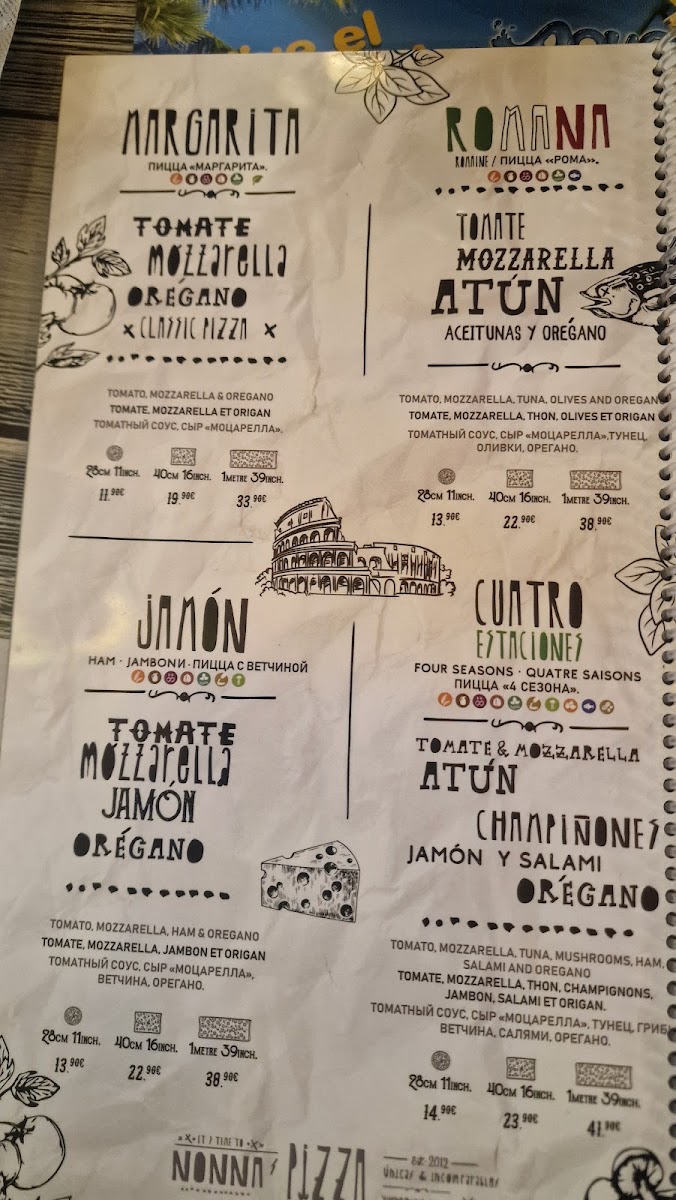 MARGARITA
ПИЦЦА «МАРГАРИТА».
TOMATE
MOZZARELLA
ORÉGANO
x CLASSIC PIZZA x
TOMATO, MOZZARELLA & OREGANO
TOMATE, MOZZARELLA ET ORIGAN
ТОМАТНЫЙ СОУС, СЫР «МОЦАРЕЛЛА».
28CM 11INCH. 40CM 16INCH. 1METRE 39INCH.
11.90€ 19.90€ 33.90€
ROMANA
ROMAINE / ПИЦЦА «РОМА».
TOMATE
MOZZARELLA
ATÚN
ACEITUNAS Y ORÉGANO
TOMATO, MOZZARELLA, TUNA, OLIVES AND OREGAN
TOMATE, MOZZARELLA, THON, OLIVES ET ORIGAN
ТОМАТНЫЙ СОУС, СЫР «МОЦАРЕЛЛА», ТУНЕЦ,
ОЛИВКИ, ОРЕГАНО.
28CM 11INCH. 40CM 16INCH. 1METRE 39INCH.
13.90€ 22.90€ 38.90€
JAMÓN
HAM · JAMBONИ · ПИЦЦА С ВЕТЧИНОЙ
TOMATE
MOZZARELLA
JAMÓN
ORÉGANO
TOMATO, MOZZARELLA, HAM & OREGANO
TOMATE, MOZZARELLA, JAMBON ET ORIGAN
ТОМАТНЫЙ СОУС, СЫР «МОЦАРЕЛЛА»,
ВЕТЧИНА, ОРЕГАНО.
28CM 11INCH. 40CM 16INCH. 1METRE 39INCH.
13.90€ 22.90€ 38.90€
CUATRO
ESTACIONES
FOUR SEASONS · QUATRE SAISONS
ПИЦЦА «4 СЕЗОНА».
TOMATE & MOZZARELLA
ATÚN
CHAMPIÑONES
JAMÓN Y SALAMI
ORÉGANO
TOMATO, MOZZARELLA, TUNA, MUSHROOMS, HAM,
SALAMI AND OREGANO
TOMATE, MOZZARELLA, THON, CHAMPIGNONS,
JAMBON, SALAMI ET ORIGAN.
ТОМАТНЫЙ СОУС, СЫР «МОЦАРЕЛЛА», ТУНЕЦ, ГРИБ
ВЕТЧИНА, САЛЯМИ, ОРЕГАНО.
28CM 11INCH. 40CM 16INCH. 1METRE 39INCH.
14.90€ 23.90€ 41.90€
IT'S TIME TO
NONNA'S PIZZA
est. 2012
ÚNICAS & INCOMPARABLES